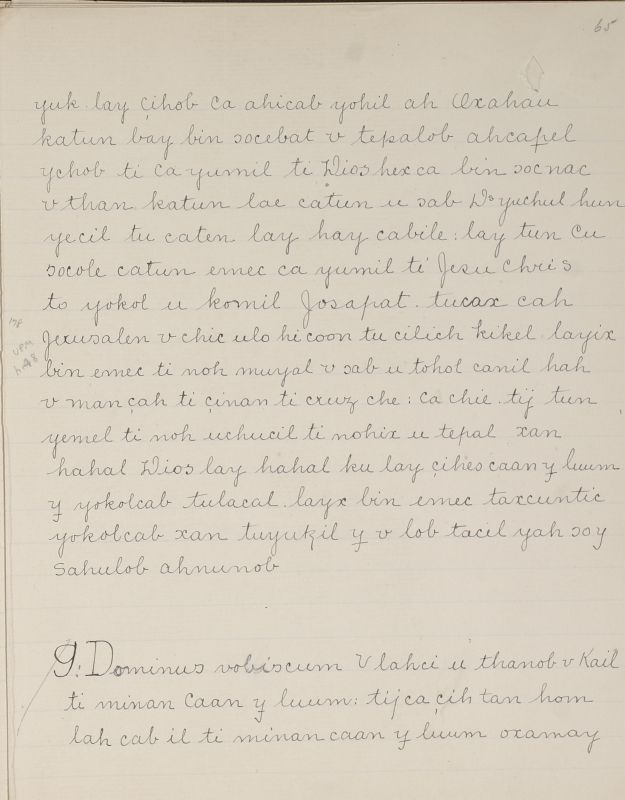 65
yuk lay çihob ca ahicab yohil ah Oxahau
katun bay bin socebat v tepalob ahcapel
ychob ti ca yumil ti Dios hex ca bin socnac
v than katun lae catun u sab Ds yuchul hun
yecil tu caten lay hay cabile : lay tun cu
socole catun emec ca yumil ti Jesu Chris
to yokol u komil Josapat. tucax cah
Jerusalen v chic ulo hicoon tu cilich kikel layix
bin emec ti noh muyal v sab u tohol canil hah
v man çah ti çinan ti cruz che : ca chie tij tun
yemel ti noh uchucil ti nohix u tepal xan
hahal Dios lay hahal ku lay çihes caan y luum
y yokolcab tulacal. layx bin emec taxcuntic
yokolcab xan tuyukil y v lob tacil yah soy
sahulob ahnunob
UPM
h.48
9: Dominus vobiscum V lahci u thanob v Kail
ti minan Caan y luum: tij ca çih tan hom
lah cab il ti minan caan y luum oxamay